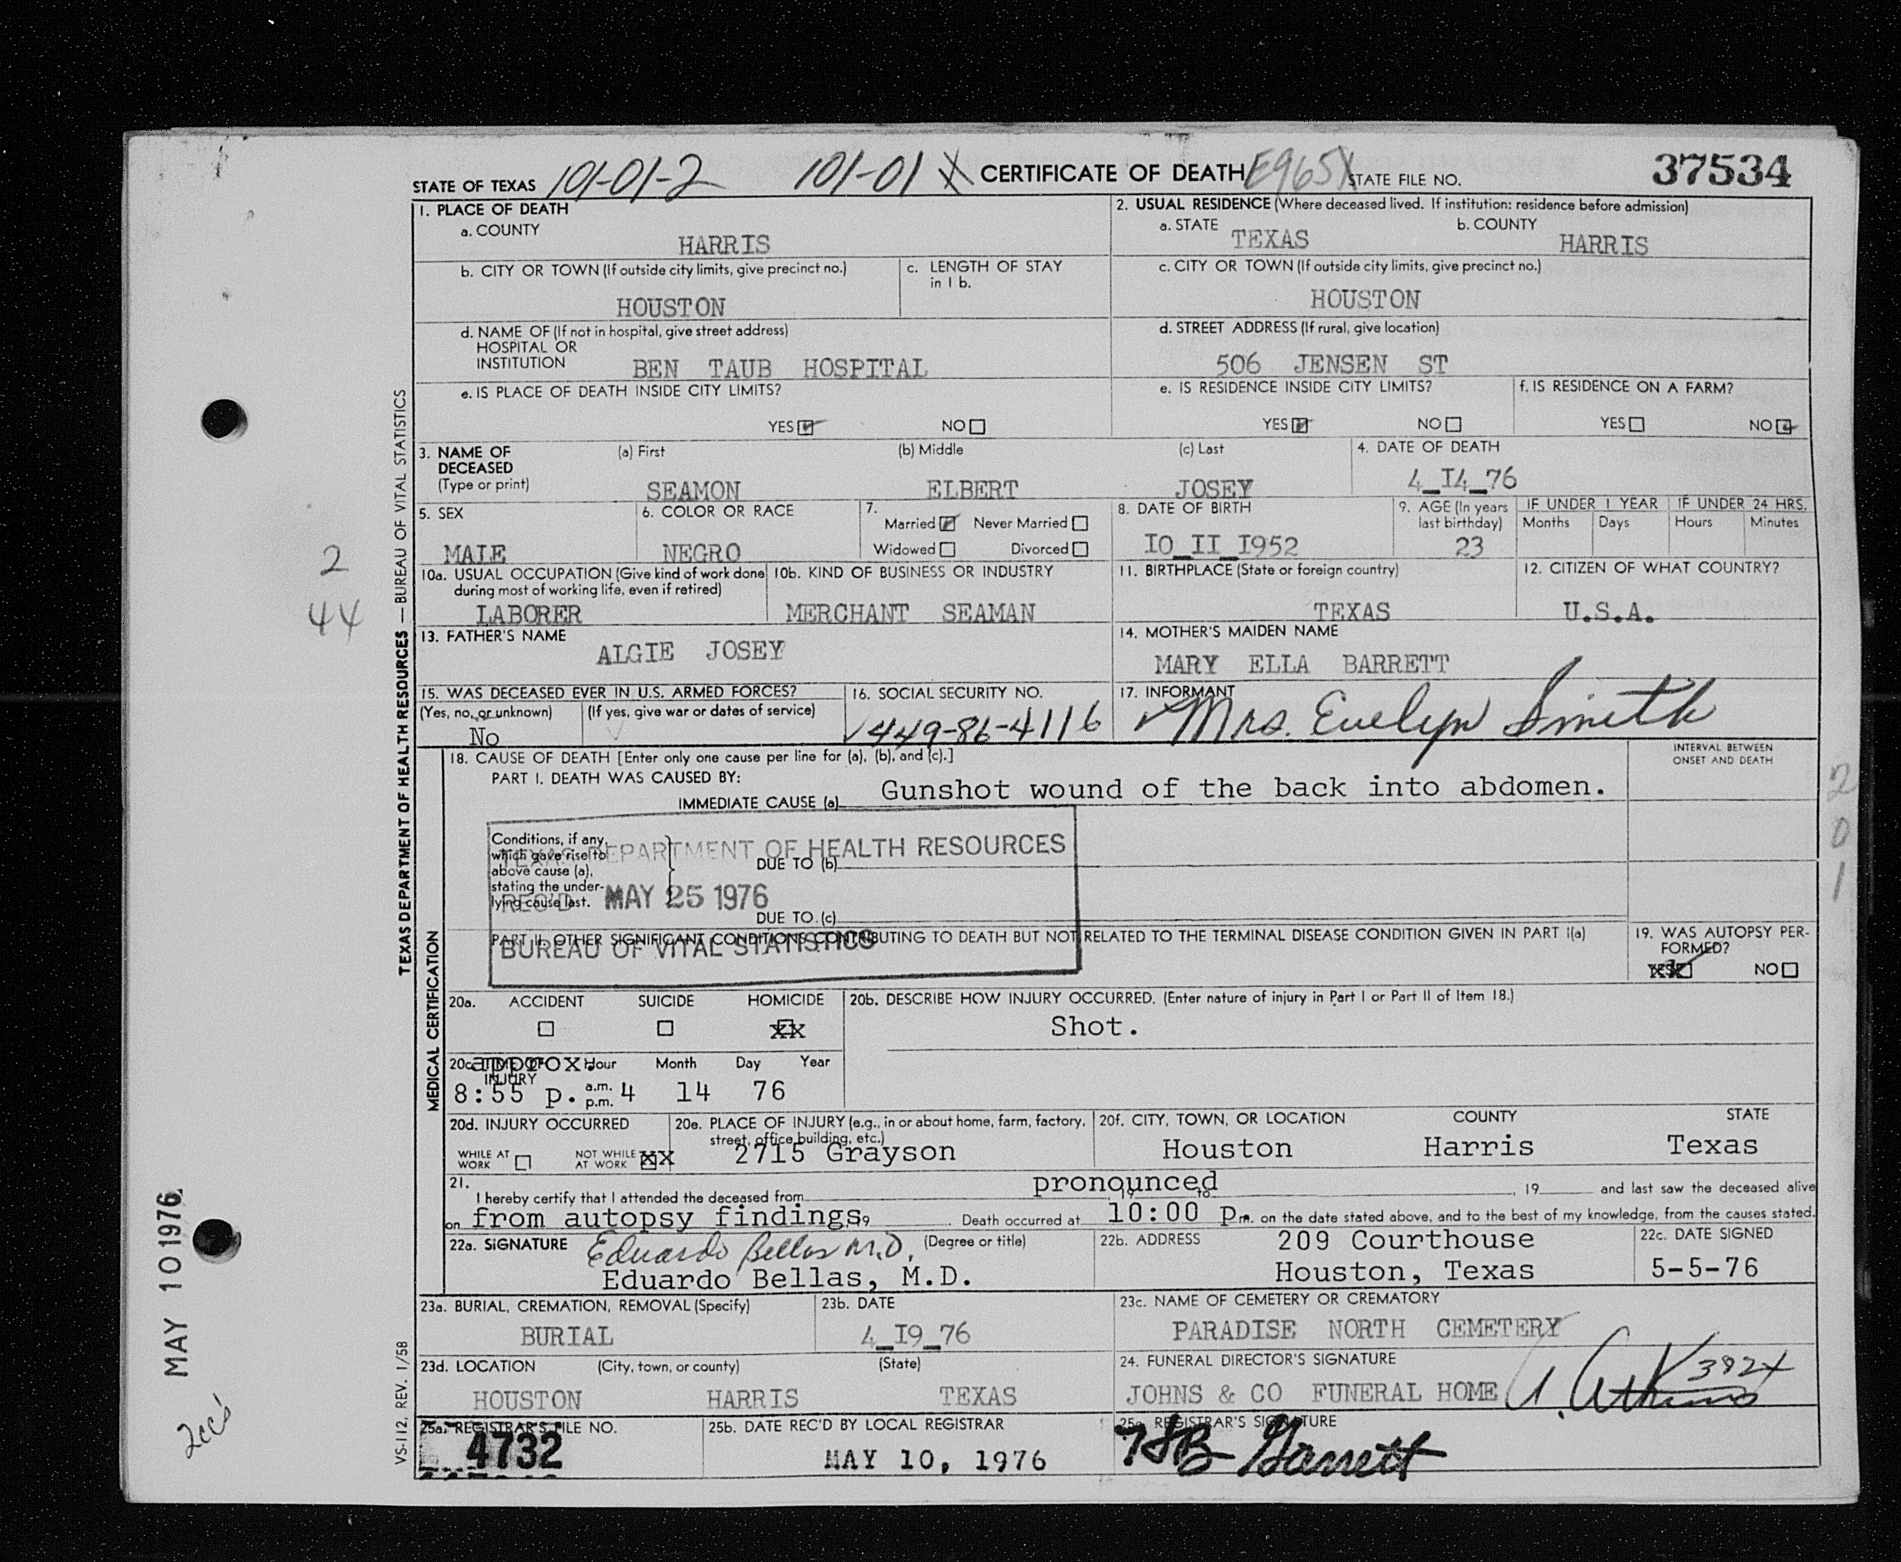 STATE OF TEXAS 101-01-2 101-01 X CERTIFICATE OF DEATH E965X STATE FILE NO. 37534
1. PLACE OF DEATH
a. COUNTY
HARRIS
2. USUAL RESIDENCE (Where deceased lived. If institution: residence before admission)
a. STATE TEXAS b. COUNTY HARRIS
b. CITY OR TOWN (If outside city limits, give precinct no.)
HOUSTON
c. LENGTH OF STAY
in 1 b.
c. CITY OR TOWN (If outside city limits, give precinct no.)
HOUSTON
d. NAME OF (If not in hospital, give street address)
HOSPITAL OR
INSTITUTION BEN TAUB HOSPITAL
d. STREET ADDRESS (If rural, give location)
506 JENSEN ST
e. IS PLACE OF DEATH INSIDE CITY LIMITS?
YES NO
e. IS RESIDENCE INSIDE CITY LIMITS?
YES NO
f. IS RESIDENCE ON A FARM?
YES NO
3. NAME OF
DECEASED
(Type or print)
(a) First (b) Middle (c) Last
SEAMON ELBERT JOSEY
4. DATE OF DEATH
4_I4_76
5. SEX
MALE
6. COLOR OR RACE
NEGRO
7.
Married Never Married
Widowed Divorced
8. DATE OF BIRTH
IO_II_I952
9. AGE (In years
last birthday)
23
IF UNDER 1 YEAR IF UNDER 24 HRS.
Months Days Hours Minutes
10a. USUAL OCCUPATION (Give kind of work done
during most of working life, even if retired)
LABORER
10b. KIND OF BUSINESS OR INDUSTRY
MERCHANT SEAMAN
11. BIRTHPLACE (State or foreign country)
TEXAS
12. CITIZEN OF WHAT COUNTRY?
U.S.A.
13. FATHER'S NAME
ALGIE JOSEY
14. MOTHER'S MAIDEN NAME
MARY ELLA BARRETT
15. WAS DECEASED EVER IN U.S. ARMED FORCES?
(Yes, no, or unknown) (If yes, give war or dates of service)
No
16. SOCIAL SECURITY NO.
449-86-4116
17. INFORMANT
Mrs. Evelyn Smith
18. CAUSE OF DEATH [Enter only one cause per line for (a), (b), and (c).]
PART I. DEATH WAS CAUSED BY:
IMMEDIATE CAUSE (a) Gunshot wound of the back into abdomen.
INTERVAL BETWEEN
ONSET AND DEATH
Conditions, if any,
which gave rise to
above cause (a),
stating the under-
lying cause last.
DUE TO (b)
DUE TO (c)
TEXAS DEPARTMENT OF HEALTH RESOURCES
REC'D MAY 25 1976
BUREAU OF VITAL STATISTICS
PART II. OTHER SIGNIFICANT CONDITIONS CONTRIBUTING TO DEATH BUT NOT RELATED TO THE TERMINAL DISEASE CONDITION GIVEN IN PART I(a)
19. WAS AUTOPSY PER-
FORMED?
YES NO
20a. ACCIDENT SUICIDE HOMICIDE
XX
20b. DESCRIBE HOW INJURY OCCURRED. (Enter nature of injury in Part I or Part II of Item 18.)
Shot.
20c. TIME OF INJURY Hour Month Day Year
approx.
8:55 p. a.m. p.m. 4 14 76
20d. INJURY OCCURRED
WHILE AT WORK NOT WHILE AT WORK XX
20e. PLACE OF INJURY (e.g., in or about home, farm, factory,
street, office building, etc.)
2715 Grayson
20f. CITY, TOWN, OR LOCATION COUNTY STATE
Houston Harris Texas
21. pronounced
I hereby certify that I attended the deceased from , 19 to , 19 and last saw the deceased alive
on from autopsy findings 19 . Death occurred at 10:00 p m. on the date stated above, and to the best of my knowledge, from the causes stated.
22a. SIGNATURE Eduardo Bellas M.D. (Degree or title)
Eduardo Bellas, M.D.
22b. ADDRESS 209 Courthouse
Houston, Texas
22c. DATE SIGNED
5-5-76
23a. BURIAL, CREMATION, REMOVAL (Specify)
BURIAL
23b. DATE
4_I9_76
23c. NAME OF CEMETERY OR CREMATORY
PARADISE NORTH CEMETERY
23d. LOCATION (City, town, or county) (State)
HOUSTON HARRIS TEXAS
24. FUNERAL DIRECTOR'S SIGNATURE
JOHNS & CO FUNERAL HOME
25a. REGISTRAR'S FILE NO.
4732
25b. DATE REC'D BY LOCAL REGISTRAR
MAY 10, 1976
25c. REGISTRAR'S SIGNATURE
Garrett
TEXAS DEPARTMENT OF HEALTH RESOURCES — BUREAU OF VITAL STATISTICS
MEDICAL CERTIFICATION
VS-112, REV. 1/58
2
44
2
0
1
MAY 10 1976
2cc's